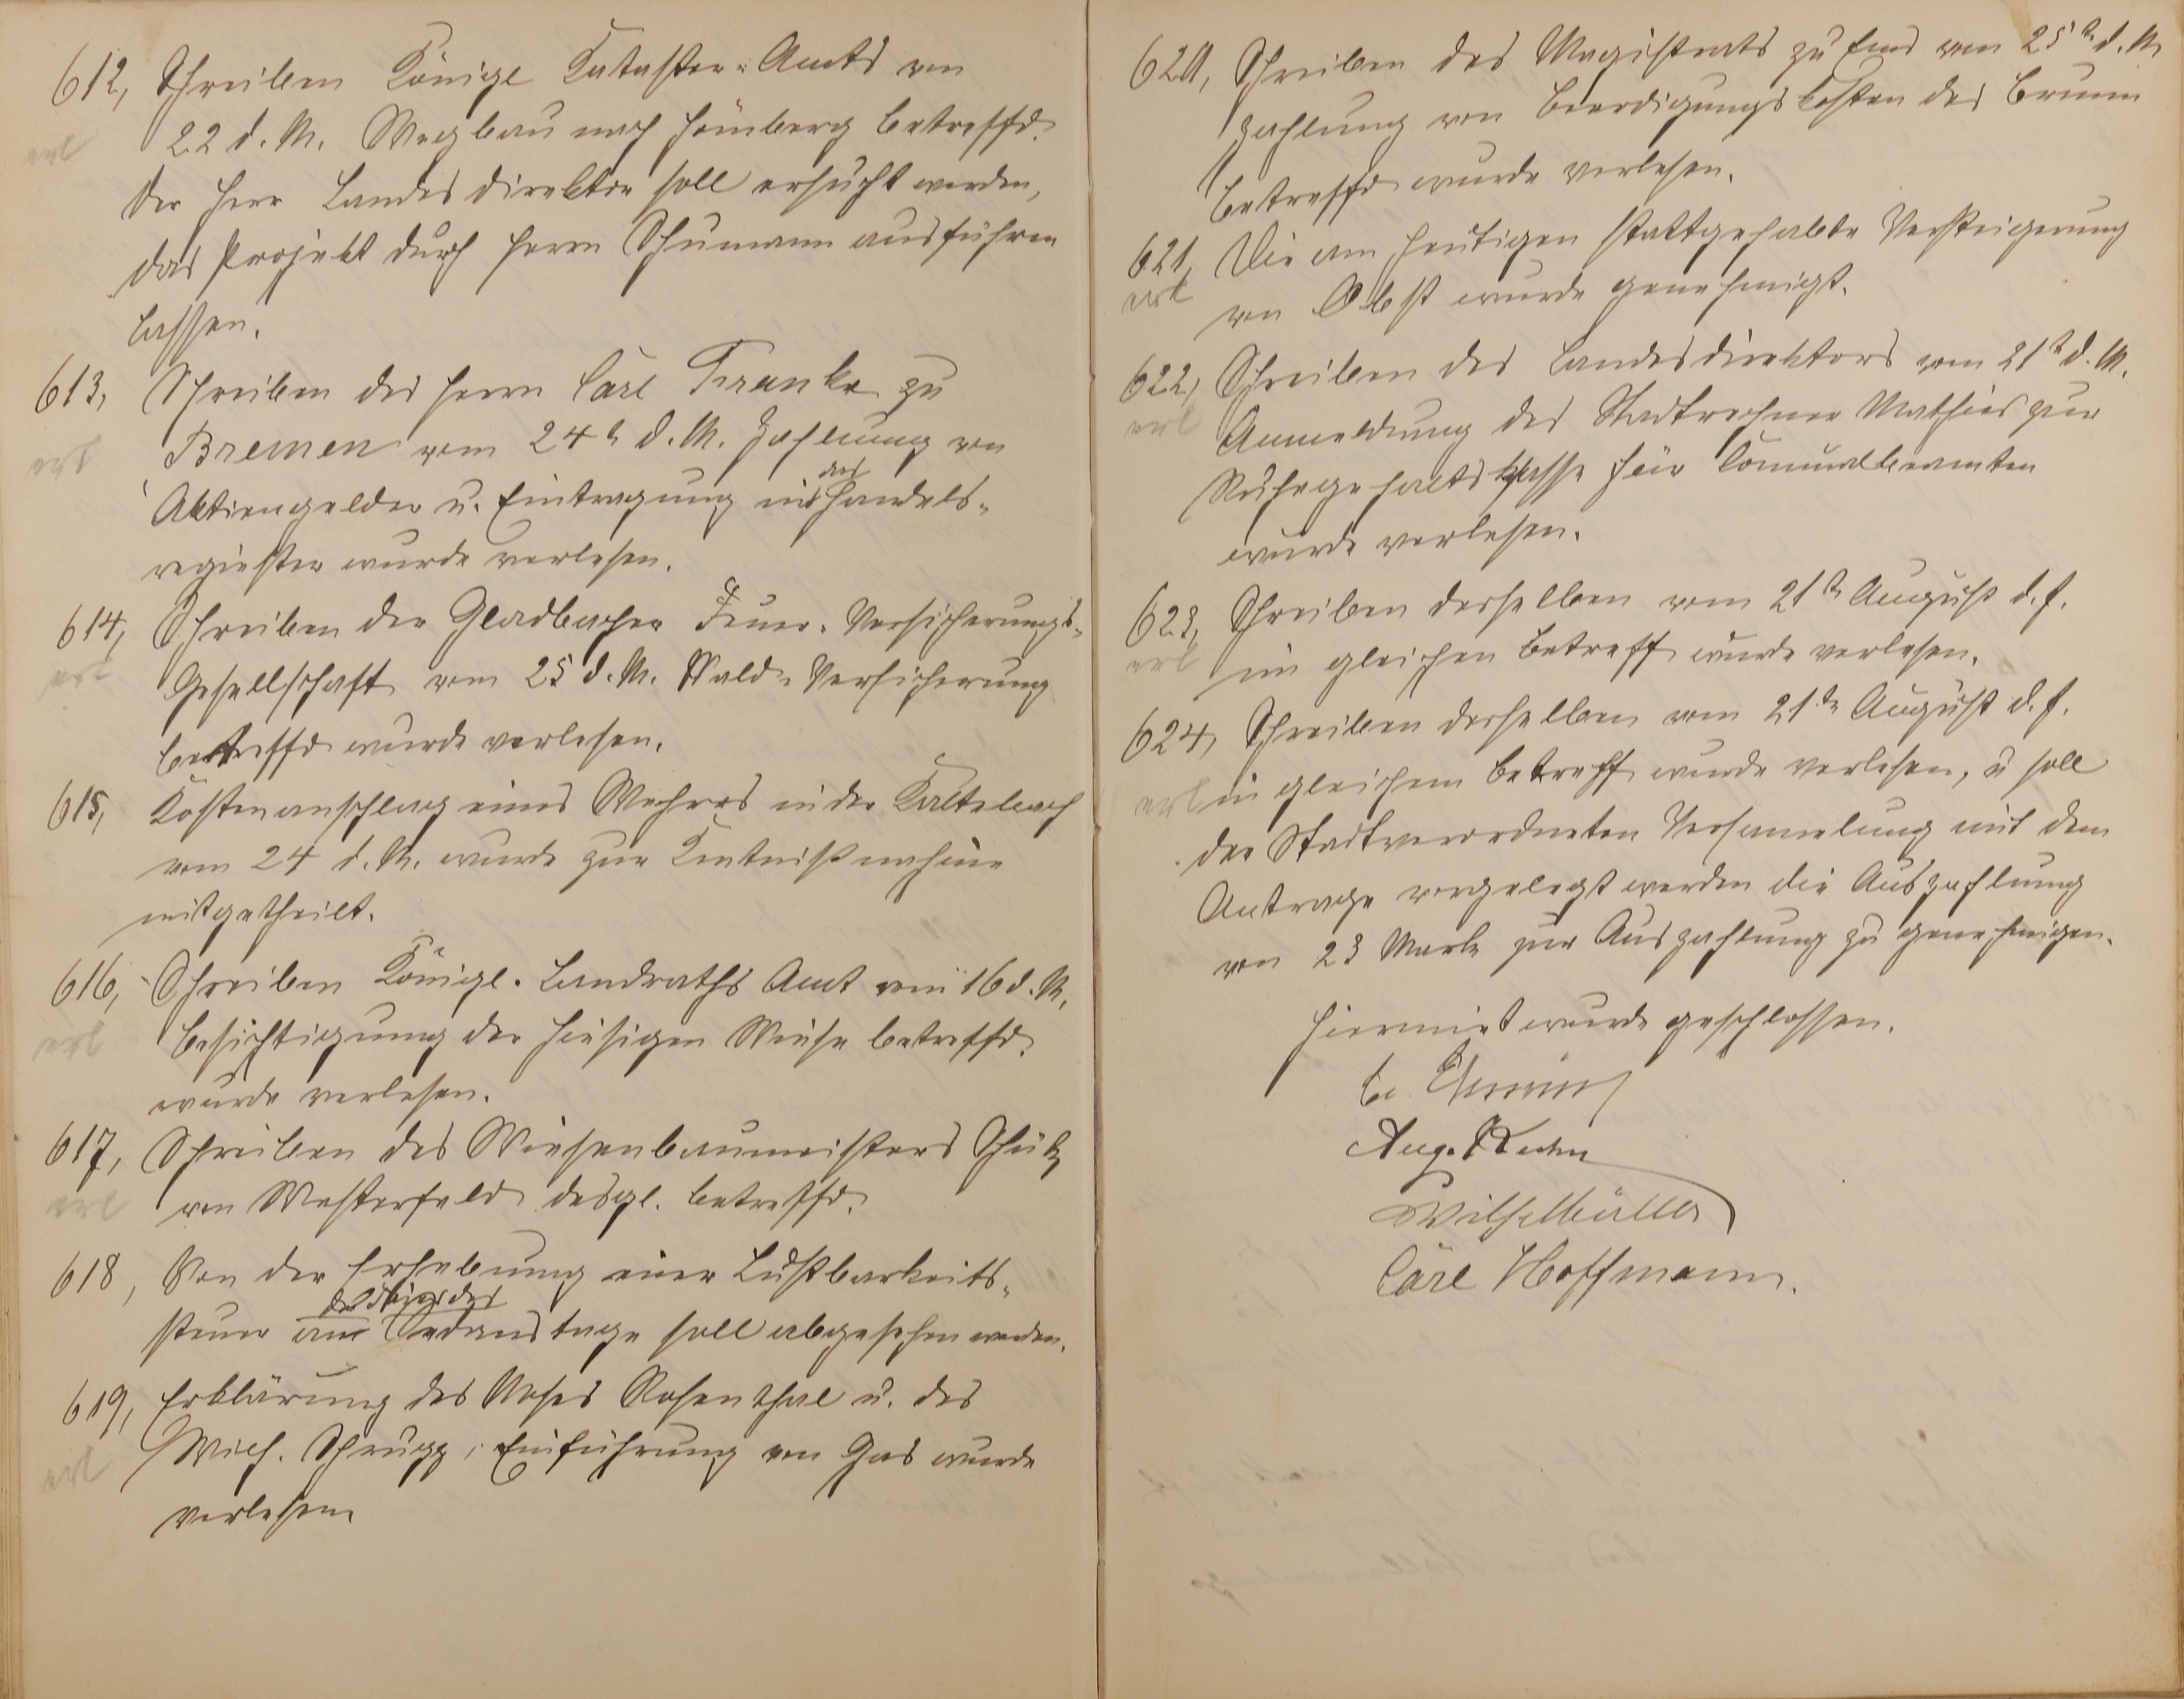 612, Schreiben Königl Kataster-Amts von
22 d. M. Wegbau nach Hömberg betreffd.
erl
Der Herr Landes direktor soll ersucht werden,
das Projekt durch Herrn Schumann ausführen
lassen.
613, Schreiben des Herrn Carl Franke zu
Bremen vom 24t d. M. Zahlung von
erl
das
Aktiengelder u. Eintragung ins Handels-
register wurde verlesen.
614, Schreiben der Gladbacher Feuer-Versicherungs-
erl
Gesellschaft vom 25 d. M. Wald-Versicherung
betreffd wurde verlesen.
615, Kostenanschlag eines Wehres in der Kaltebach
vom 24 d. M. wurde zur Kentnißnahme
mitgetheilt.
616, Schreiben Königl. Landraths Amt vom 16 d. M.
erl
Besichtigung der hiesigen Wiese betreffd.
wurde verlesen.
617, Schreiben des Wiesenbaumeisters Schütz
erl
von Westerfeld desgl. betreffd.
618, Von der Erhebung einer Lustbarkeits-
steuer am Sedanstage soll abgesehen werden.
619, Erklärung des Moses Rosenthal u. des
Wilh. Schrupp, Einführung von Gas wurde
erl
verlesen
620, Schreiben des Magistrats zu Ems vom 25t d. M
Zahlung von Beerdigungskosten des Brumm
betreffd wurde verlesen.
621, Die am heutigen stattgehabte Versteigerung
erl
von Obst wurde genehmigt.
622, Schreiben des Landesdirektors vom 21t d. M.
erl
Anmeldung des Stadtrechner Mathies zur
Ruhegehaltskasse für Comunalbeamten
wurde verlesen.
623, Schreiben desselben vom 21t August d. J.
erl
im gleichen Betreff wurde verlesen.
624, Schreiben desselben vom 21te August d. J.
erl
in gleichem Betreff wurde verlesen, u soll
der Stadtverordneten Versamelung mit dem
Antrage vorgelegt werden die Auszahlung
von 23 Mark zur Auszahlung zu genehmigen.
Hiermiet wurde geschlossen.
Aug.
Wilh Müller
Carl Hoffmann.